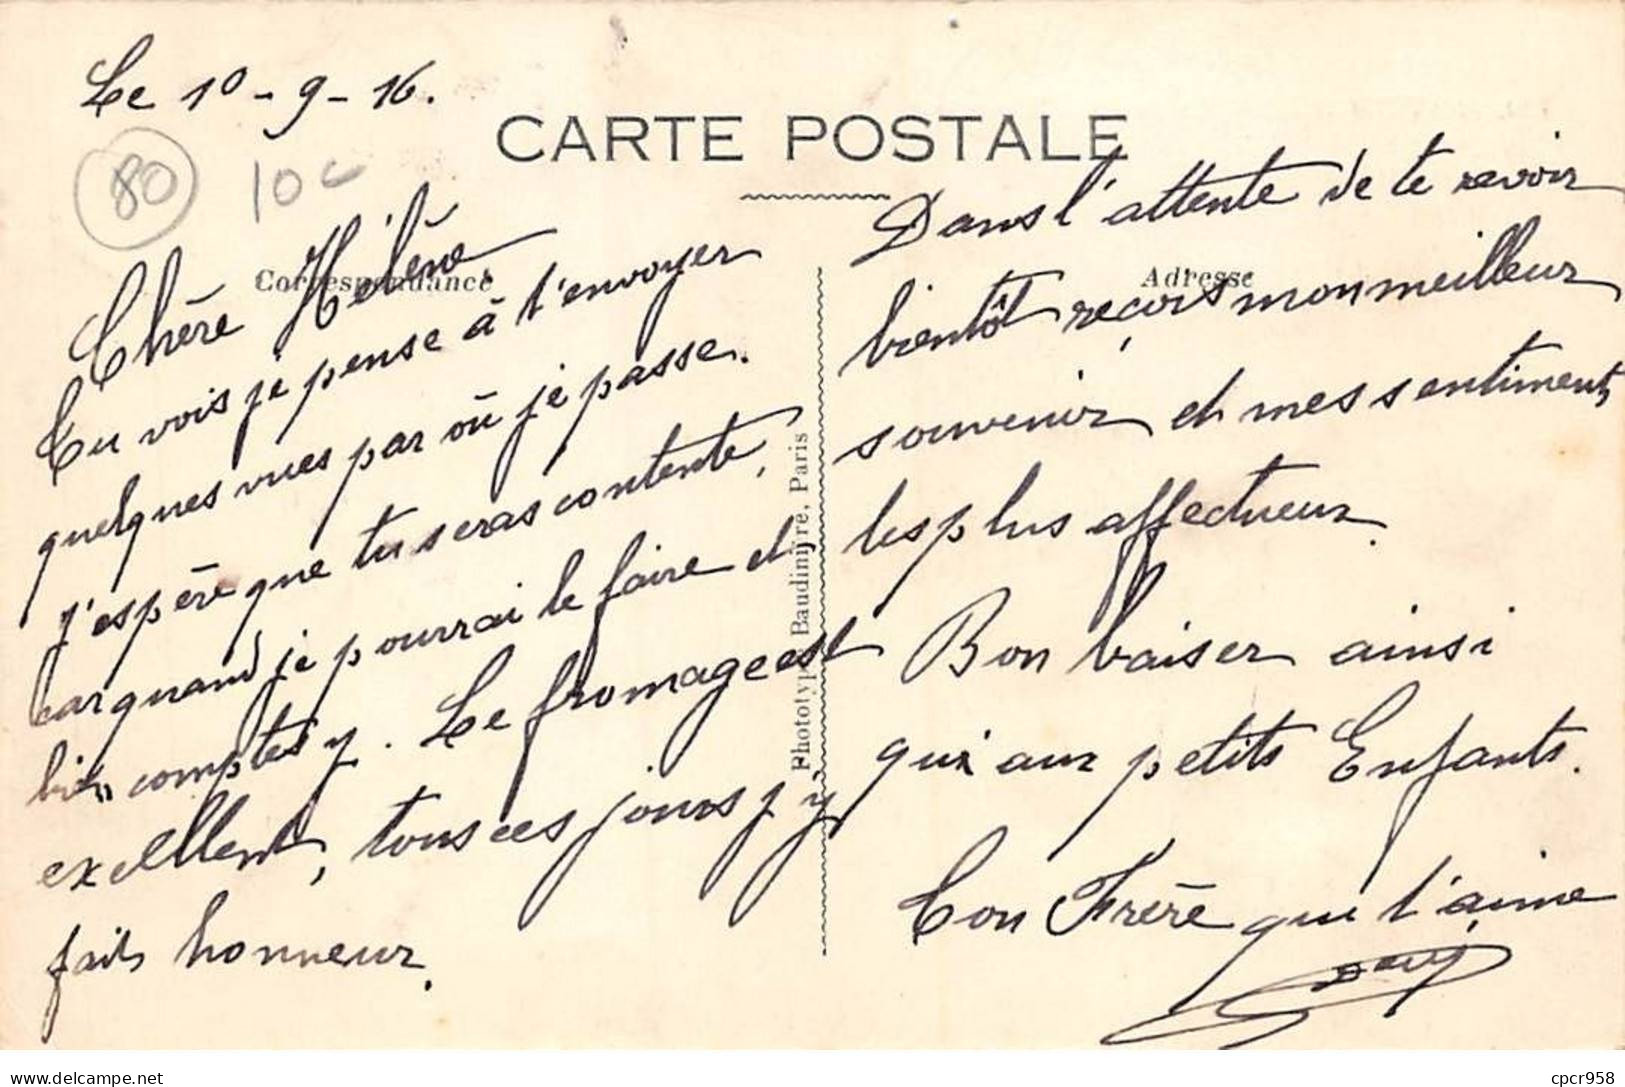 Le 10-9-16.
80
10c
CARTE POSTALE
Correspondance
Adresse
Chère Hélène
Tu vois je pense à t'envoyer
quelques vues par où je passe.
J'espère que tu seras contente,
car quand je pourrai le faire et
bien comptes y. Le fromage est
excellent, tous ces jours j'y
fais honneur.
Phototypie Baudinière, Paris
Dans l'attente de te revoir
bientôt reçois mon meilleur
souvenir et mes sentiments
les plus affectueux.
Bon baiser ainsi
qui aux petits Enfants.
Ton Frère qui t'aime
delcampe.net
cpcr958